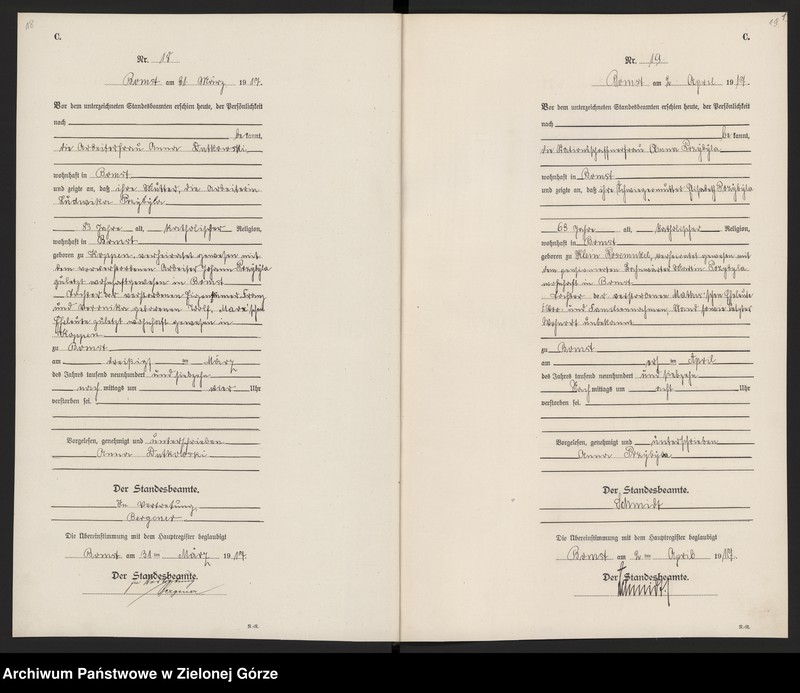 18
C.
Nr. 18
Bomst am 31 März 1917.
Vor dem unterzeichneten Standesbeamten erschien heute, der Persönlichkeit
nach
be kannt,
die Arbeiterfrau Anna Dutkowski
wohnhaft in Bomst
und zeigte an, daß ihre Mutter, die Arbeiterin
Ludwika Przybyla
83 Jahre alt, katholischer Religion,
wohnhaft in Bomst
geboren zu Koppen, verheiratet gewesen mit
dem verstorbenen Arbeiter Johann Przybyla
zuletzt wohnhaft gewesen in Bomst
Tochter der verstorbenen Franz
und Veronika geborenen Wolf,
Eheleute zuletzt wohnhaft gewesen in
Koppen
zu Bomst
am dreißigsten März
des Jahres tausend neunhundert und siebzehn
nach mittags um vier Uhr
verstorben sei.
Vorgelesen, genehmigt und unterschrieben
Anna Dutkowski
Der Standesbeamte.
In Vertretung
Bergener
Die Übereinstimmung mit dem Hauptregister beglaubigt
Bomst am 31 ten März 1917.
Der Standesbeamte.
In Vertretung
Bergener
R.-R.
19
C.
Nr. 19
Bomst am 2 April 1917.
Vor dem unterzeichneten Standesbeamten erschien heute, der Persönlichkeit
nach
be kannt,
die Anna Przybyla
wohnhaft in Bomst
und zeigte an, daß ihre Schwiegermutter Przybyla
63 Jahre alt, katholischer Religion,
wohnhaft in Bomst
geboren zu Klein Posemukel, verheiratet gewesen mit
dem Bahnwärter Martin Przybyla
wohnhaft in Bomst
Tochter der verstorbenen Eheleute
und Familiennamen, Stand sowie letzter
Wohnort unbekannt
zu Bomst
am ersten April
des Jahres tausend neunhundert und siebzehn
Nach mittags um acht Uhr
verstorben sei.
Vorgelesen, genehmigt und unterschrieben
Anna Przybyla
Der Standesbeamte.
Schmidt
Die Übereinstimmung mit dem Hauptregister beglaubigt
Bomst am 2 ten April 1917.
Der Standesbeamte.
Schmidt
R.-R.
Archiwum Państwowe w Zielonej Górze